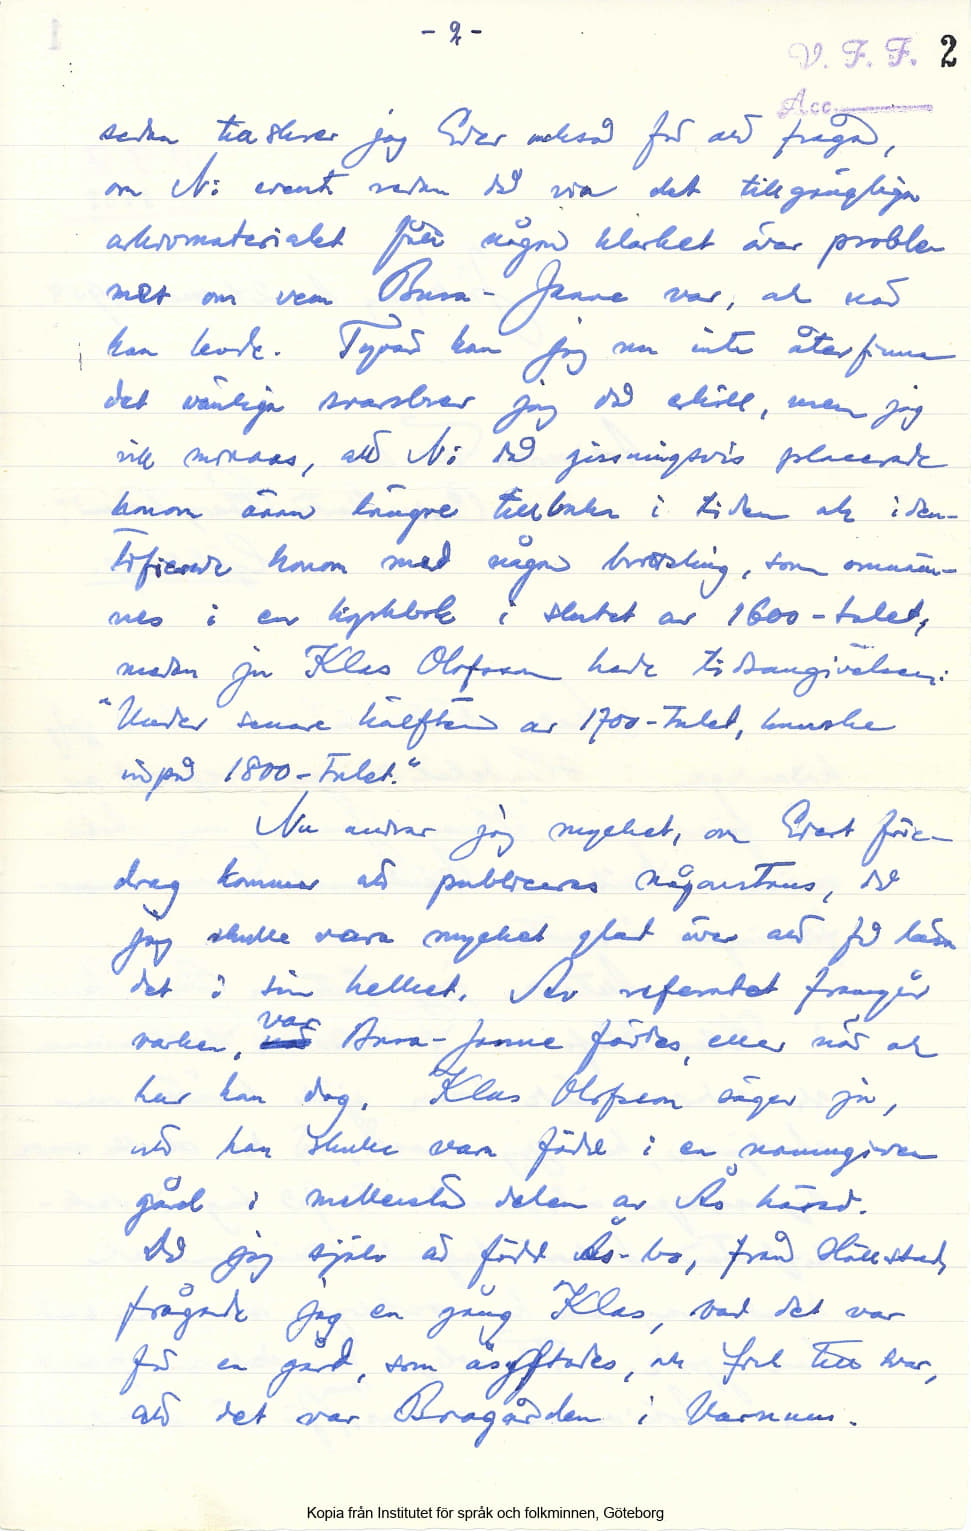 - 2 -
V. F. F. 2
Acc.
sedan tillskrev jag Eder också för att fråga,
om Ni event. redan då via det tillgängliga
arkivmaterialet fått någon klarhet över proble-
met om vem Bura-Janne var, och når
han levde. Tyvärr kan jag nu inte återfinna
det vänliga svarsbrev jag då erhöll, men jag
vill minnas, att Ni då gissningsvis placerade
honom ännu längre tillbaka i tiden och iden-
tifierade honom med någon brottsling, som omnäm-
nes i en kyrkbok i slutet av 1600-talet,
medan ju Klas Olofsson hade tidsangivelsen:
"Under senare hälften av 1700-talet, kanske
inpå 1800-talet."
Nu undrar jag mycket, om Edert före-
drag kommer att publiceras någonstans, då
jag skulle vara mycket glad över att få läsa
det i sin helhet. Av referatet framgår
varken, var Bura-Janne föddes, eller når och
hur han dog. Klas Olofsson säger ju,
att han skulle vara född i en namngiven
gård i mellersta delen av Ås härad.
Då jag själv är född Ås-bo, från Hällstad,
frågade jag en gång Klas, vad det var
för en gård, som åsyftades, och fick till svar,
att det var Bragården i Varnum.
Kopia från Institutet för språk och folkminnen, Göteborg